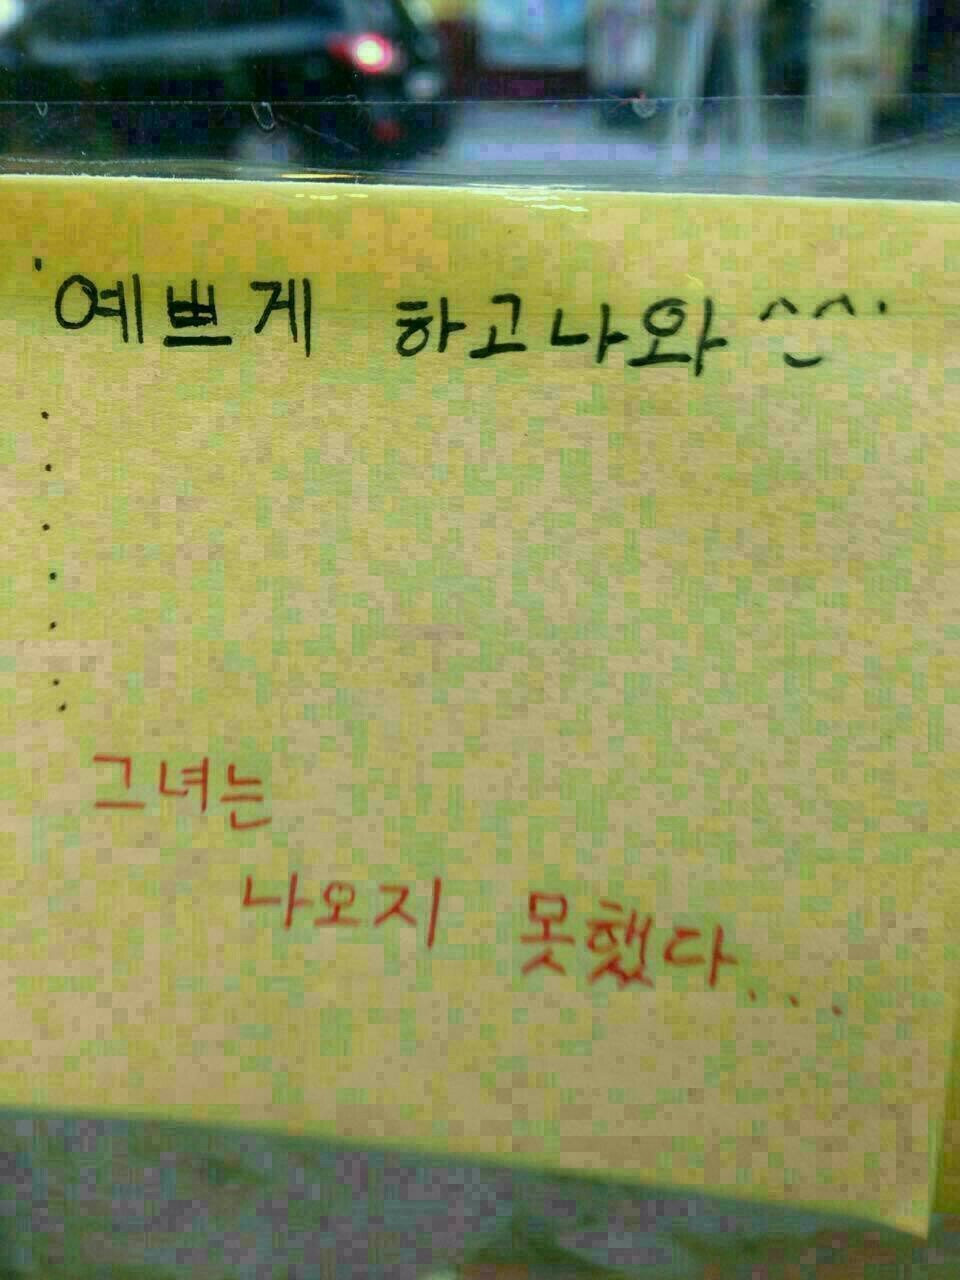 '예쁘게 하고나와 ^_^'
.
.
.
.
.
.
.
그녀는
나오지 못했다...